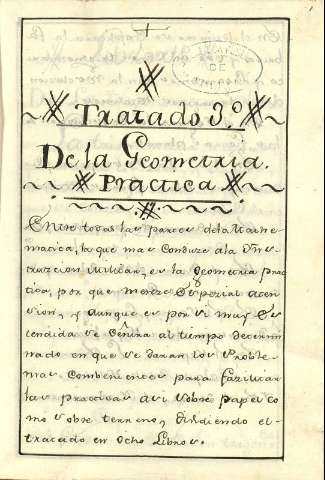 Tratado 3.º
De la Geometria.
Practica
Entre todas las partes dela Mathe-
matica, la que mas Conduze ala Yns-
truzcion Militar, es la Geometria prac
tica, por que mereze Especial aten-
sion, y aunque es por si muy Es-
tendida se Ceñira al tiempo determi-
nado en que se daran los Proble-
mas Combenientes para fazilitar
las practicas asi sobre papel co
mo sobre terreno, dividiendo el
tratado en Ocho Libros.